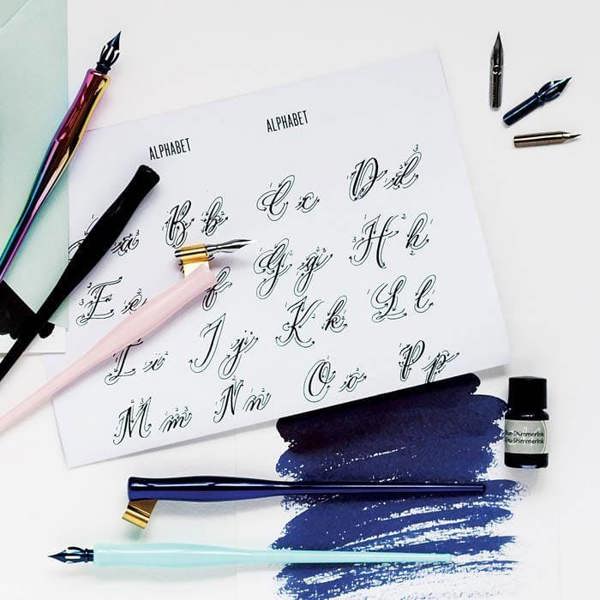 ALPHABET
ALPHABET
a B b C c D d
E e f G g H h
I i J j K k L l
M m N n O o P p